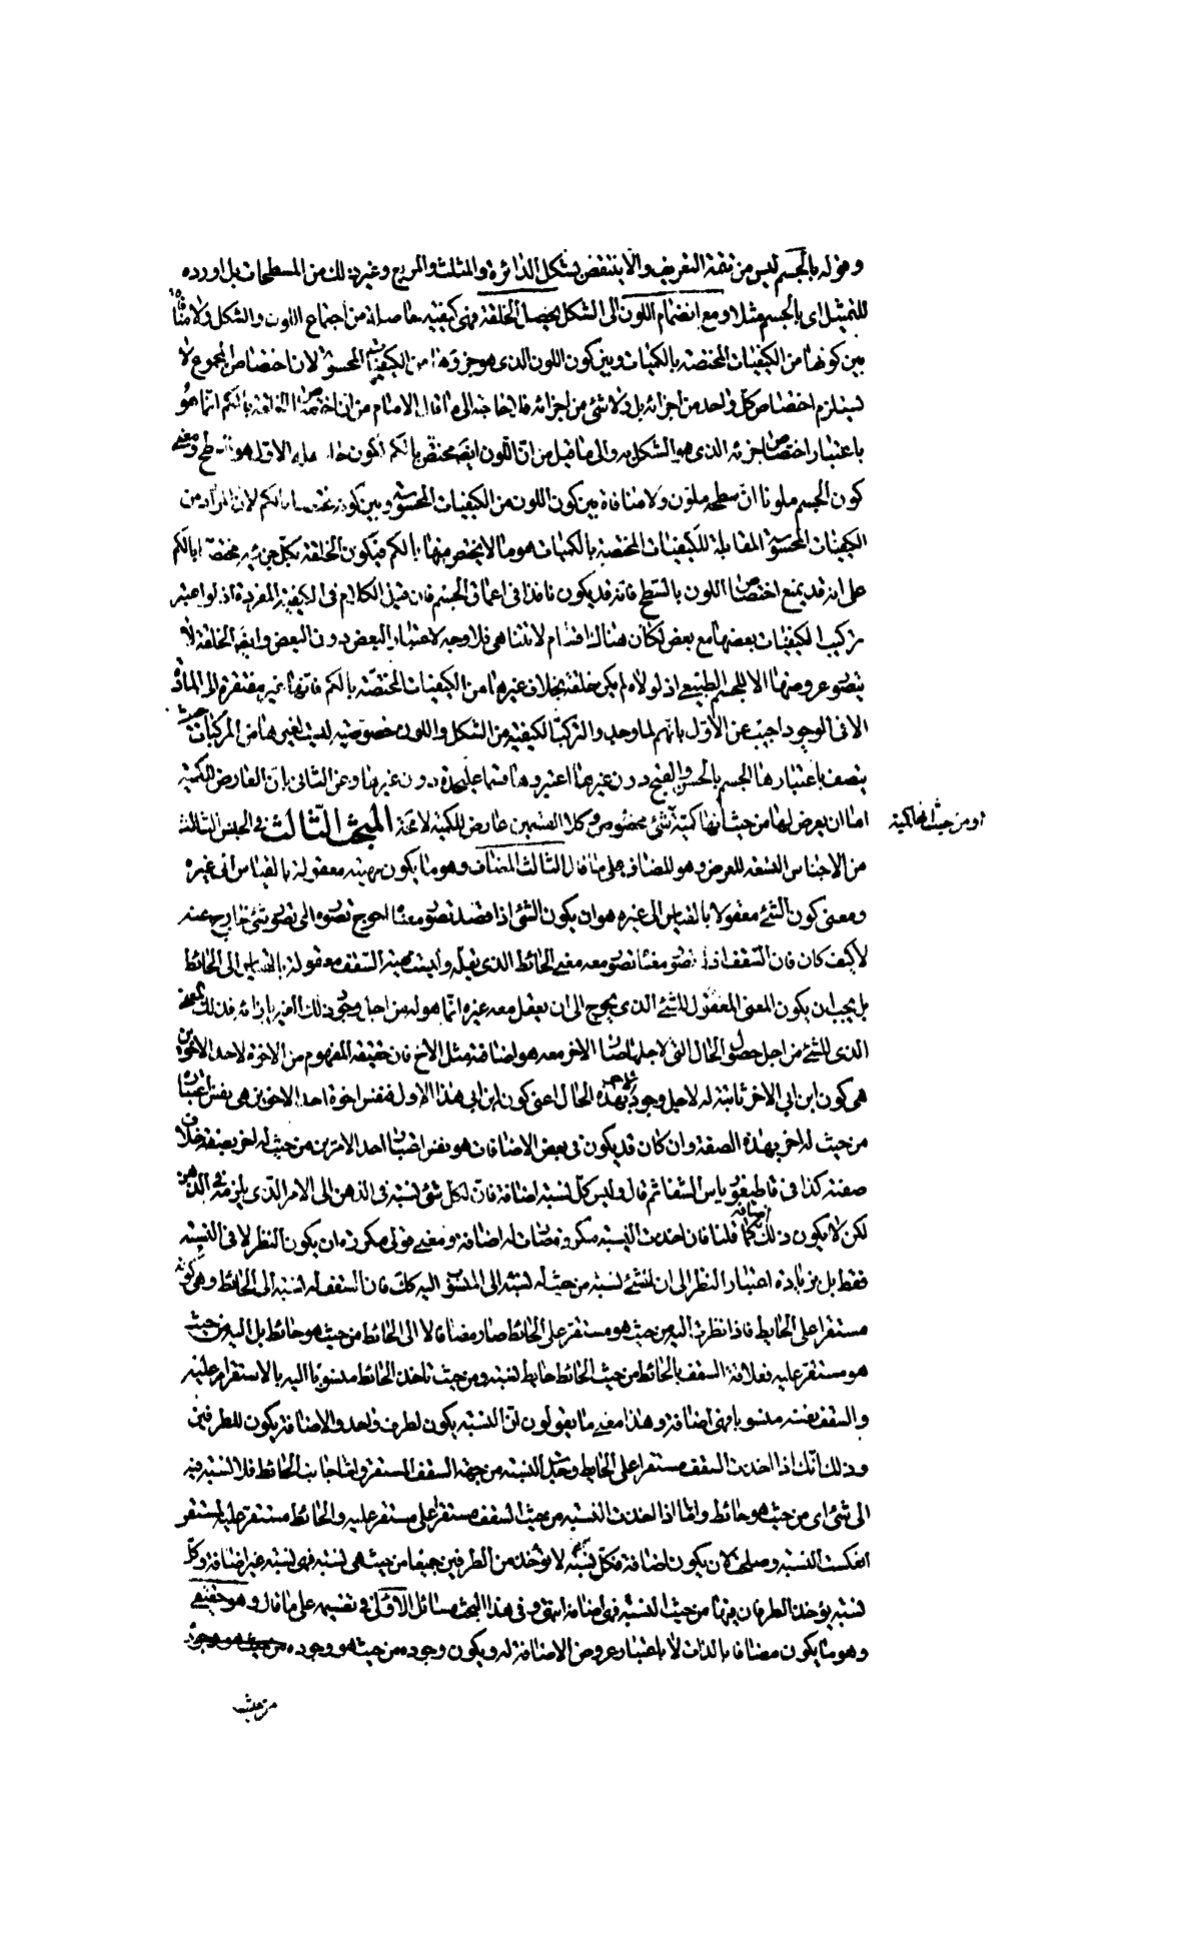 وقوله بالجسم ليس من تتمة التعريف والا ينتقض بشكل الدائرة والمثلث والمربع وغير ذلك من المسطحات بل اورده
للتمثيل اى بالجسم مثلا ومع انضمام اللون الى الشكل يحصل الخلقة فهى كيفية حاصلة من اجتماع اللون والشكل ولا منافاة
بين كونها من الكيفيات المختصة بالكميات وبين كون اللون الذى هو جزؤها من الكيفيات المحسوسة لان اختصاص المجموع لا
يستلزم اختصاص كل واحد من اجزائه بل ولا شئ من اجزائه فلا حاجة الى ما قال الامام من ان اختصاص الخلقة بالكم انما هو
باعتبار اختصاص جزئه الذى هو الشكل به والى ما قيل من ان اللون ايضا مختص بالكم لكون حامله الاول هو السطح ومعنى
كون الجسم ملونا ان سطحه ملون ولا منافاة بين كون اللون من الكيفيات المحسوسة وبين كونه مختصا بالكم لان المراد من
الكيفيات المحسوسة المقابلة للكيفيات المختصة بالكميات هو ما لا يختص منها بالكم فيكون الخلقة بكل جزئيه مختصة بالكم
على انه قد يمنع اختصاص اللون بالسطح فانه قد يكون نافذا فى اعماق الجسم فان قيل الكلام فى الكيفية المفردة اذ لو اعتبر
تركيب الكيفيات بعضها مع بعض لكان هناك اقسام لا تتناهى فلا وجه لاعتبار البعض دون البعض وايضا الخلقة لا
يتصور عروضها الا للجسم الطبيعى اذ لولاه لم يكن خلقة بخلاف غيرها من الكيفيات المختصة بالكم فانها غير مفتقرة الى المادة
الا فى الوجود اجيب عن الاول بانهم لما وجدوا لتركب الكيفية من الشكل واللون خصوصية ليست لغيرها من المركبات حيث
يتصف باعتبارها الجسم بالحسن والقبح دون غيرها اعتبروها قسما على حدة دون غيرها وعن الثانى بان العارض للكمية
اما ان يعرض لها من حيث انها كمية شئ مخصوص وكلا القسمين عارض للكمية لا محة المبحث الثالث فى الجنس الثالث
او من حيث انها كمية
من الاجناس التسعة للعرض وهو المضاف على ما قال الثالث المضاف وهو ما يكون مهيته معقولة بالقياس الى غيره
ومعنى كون الشئ معقولا بالقياس الى غيره هو ان يكون الشئ اذا قصد تصور معناه احوج تصوره الى تصور شئ خارج عنه
لا كيف كان فان السقف اذا تصور معناه تصور معه معنى الحائط الذى يقله وليست مهية السقف معقولة بالقياس الى الحائط
بل يجب ان يكون المعنى المعقول للشئ الذى يحوج الى ان يعقل معه غيره انما هو له من اجل وجود ذلك الغير بازائه فذلك المعنى
الذى للشئ من اجل حصول الحال التى لاجلها صار الاخر معه هو اضافته مثل الاخ فان حقيقة المفهوم من الاخوة لاحد الاخوين
هى كون ابن ابى الاخر ثابتة له لاجل وجود الاخر بهذه الحال اعنى كون ابن ابى هذا الاول فنفس اخوة احد الاخوين هى نفس اعتباره
من حيث له اخر بهذه الصفة وان كان قد يكون فى بعض الاضافات هو نفس اعتبار احد الامرين من حيث له اخر بصفة خلاف
صفته كذا فى قاطيغورياس الشفا ثم قال وليس كل نسبة اضافة فان لكل شئ نسبة فى الذهن الى الامر الذى يلزمه فى الذهن
لكن لا يكون ذلك اضافة كما قلنا فان اخذت النسبة مكررة صارت له اضافة ومعنى قولى مكررة ان يكون النظر لا فى النسبة
فقط بل بزيادة اعتبار النظر الى ان للشئ نسبة من حيث له نسبة الى المنسوب اليه كك فان السقف له نسبة الى الحائط وهى كونه
مستقرا على الحايط فاذا نظرت اليه من حيث هو مستقر على الحائط صار مضافا لا الى الحائط من حيث هو حائط بل اليه من حيث
هو مستقر عليه فعلاقة السقف بالحائط من حيث الحائط حايط نسبة ومن حيث تاخذ الحائط منسوبا اليه بالاستقرار عليه
والسقف بنفسه منسوبا فهى اضافة وهذا معنى ما يقولون ان النسبة يكون لطرف واحد والاضافة يكون للطرفين
وذلك انك اذا اخذت السقف مستقرا على الحايط وجد النسبة من جهة السقف المستقر واما جانب الحائط فلا نسبة فيه
الى شئ اى من حيث هو حائط واما اذا اخذت النسبة من حيث السقف مستقر على مستقر عليه والحائط مستقر عليه لمستقر
انعكست النسبة وصلحت لان يكون اضافة فكل نسبة لا يؤخذ من الطرفين جميعا من حيث هى نسبة فهى نسبة غير اضافة وكل
نسبة يؤخذ الطرفان فيها من حيث النسبة فهى اضافة انتهى وفى هذا البحث مسائل الاولى فى تقسيمه على ما قال وهو حقيقى
وهو ما يكون مضافا بالذات لا باعتبار عروض الاضافة له ويكون وجوده من حيث هو وجوده
من حيث